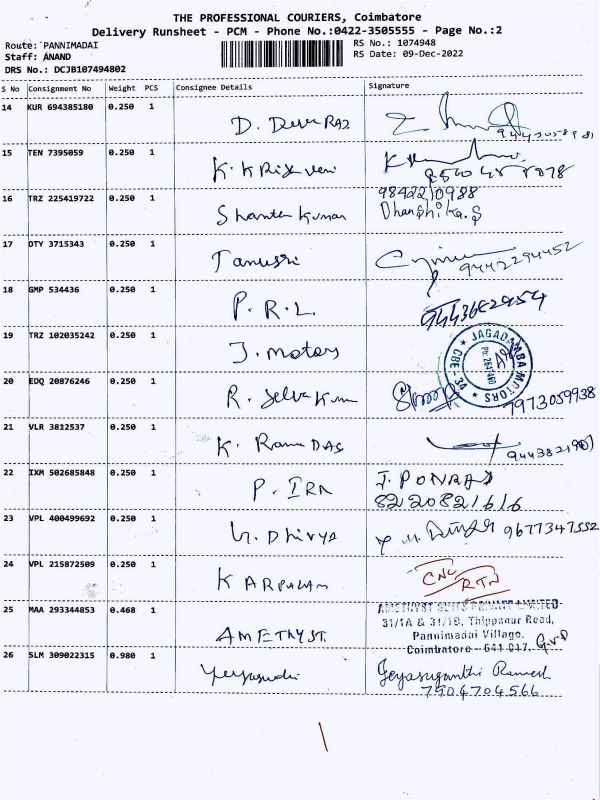 THE PROFESSIONAL COURIERS, Coimbatore
Delivery Runsheet - PCM - Phone No.:0422-3505555 - Page No.:2
Route: PANNIMADAI
Staff: ANAND
DRS No.: DCJB107494802
RS No.: 1074948
RS Date: 09-Dec-2022
S No Consignment No Weight PCS Consignee Details Signature
14 KUR 694385180 0.250 1 D. Deva RAJ
15 TEN 7395059 0.250 1 K. KRISHveni
16 TRZ 225419722 0.250 1 Shantha Kumar 9842210988
Dhanshika.S
17 OTY 3715343 0.250 1 Tanusri 9442294452
18 GMP 534436 0.250 1 P. R. L.
19 TRZ 102035242 0.250 1 J. motors
JAGADAMBA MOTORS
CBE-34
20 EDQ 20876246 0.250 1 R. Selva Kum 7973059938
21 VLR 3812537 0.250 1 K. Rama DAS
22 IXM 502685848 0.250 1 P. IRA J. PONRAJ
8220821616
23 VPL 400499692 0.250 1 U. Dhivya 9677347552
24 VPL 215872509 0.250 1 KARPAGAM CNL
RTN
25 MAA 293344853 0.468 1 AMETHYST. AMETHYST SUITS PRIVATE LIMITED
31/1A & 31/1B, Thippanur Road,
Pannimadai Village,
Coimbatore - 641 017.
26 SLM 309022315 0.980 1 Jeyasudhi Jeyasuganthi Ramesh
7904704566